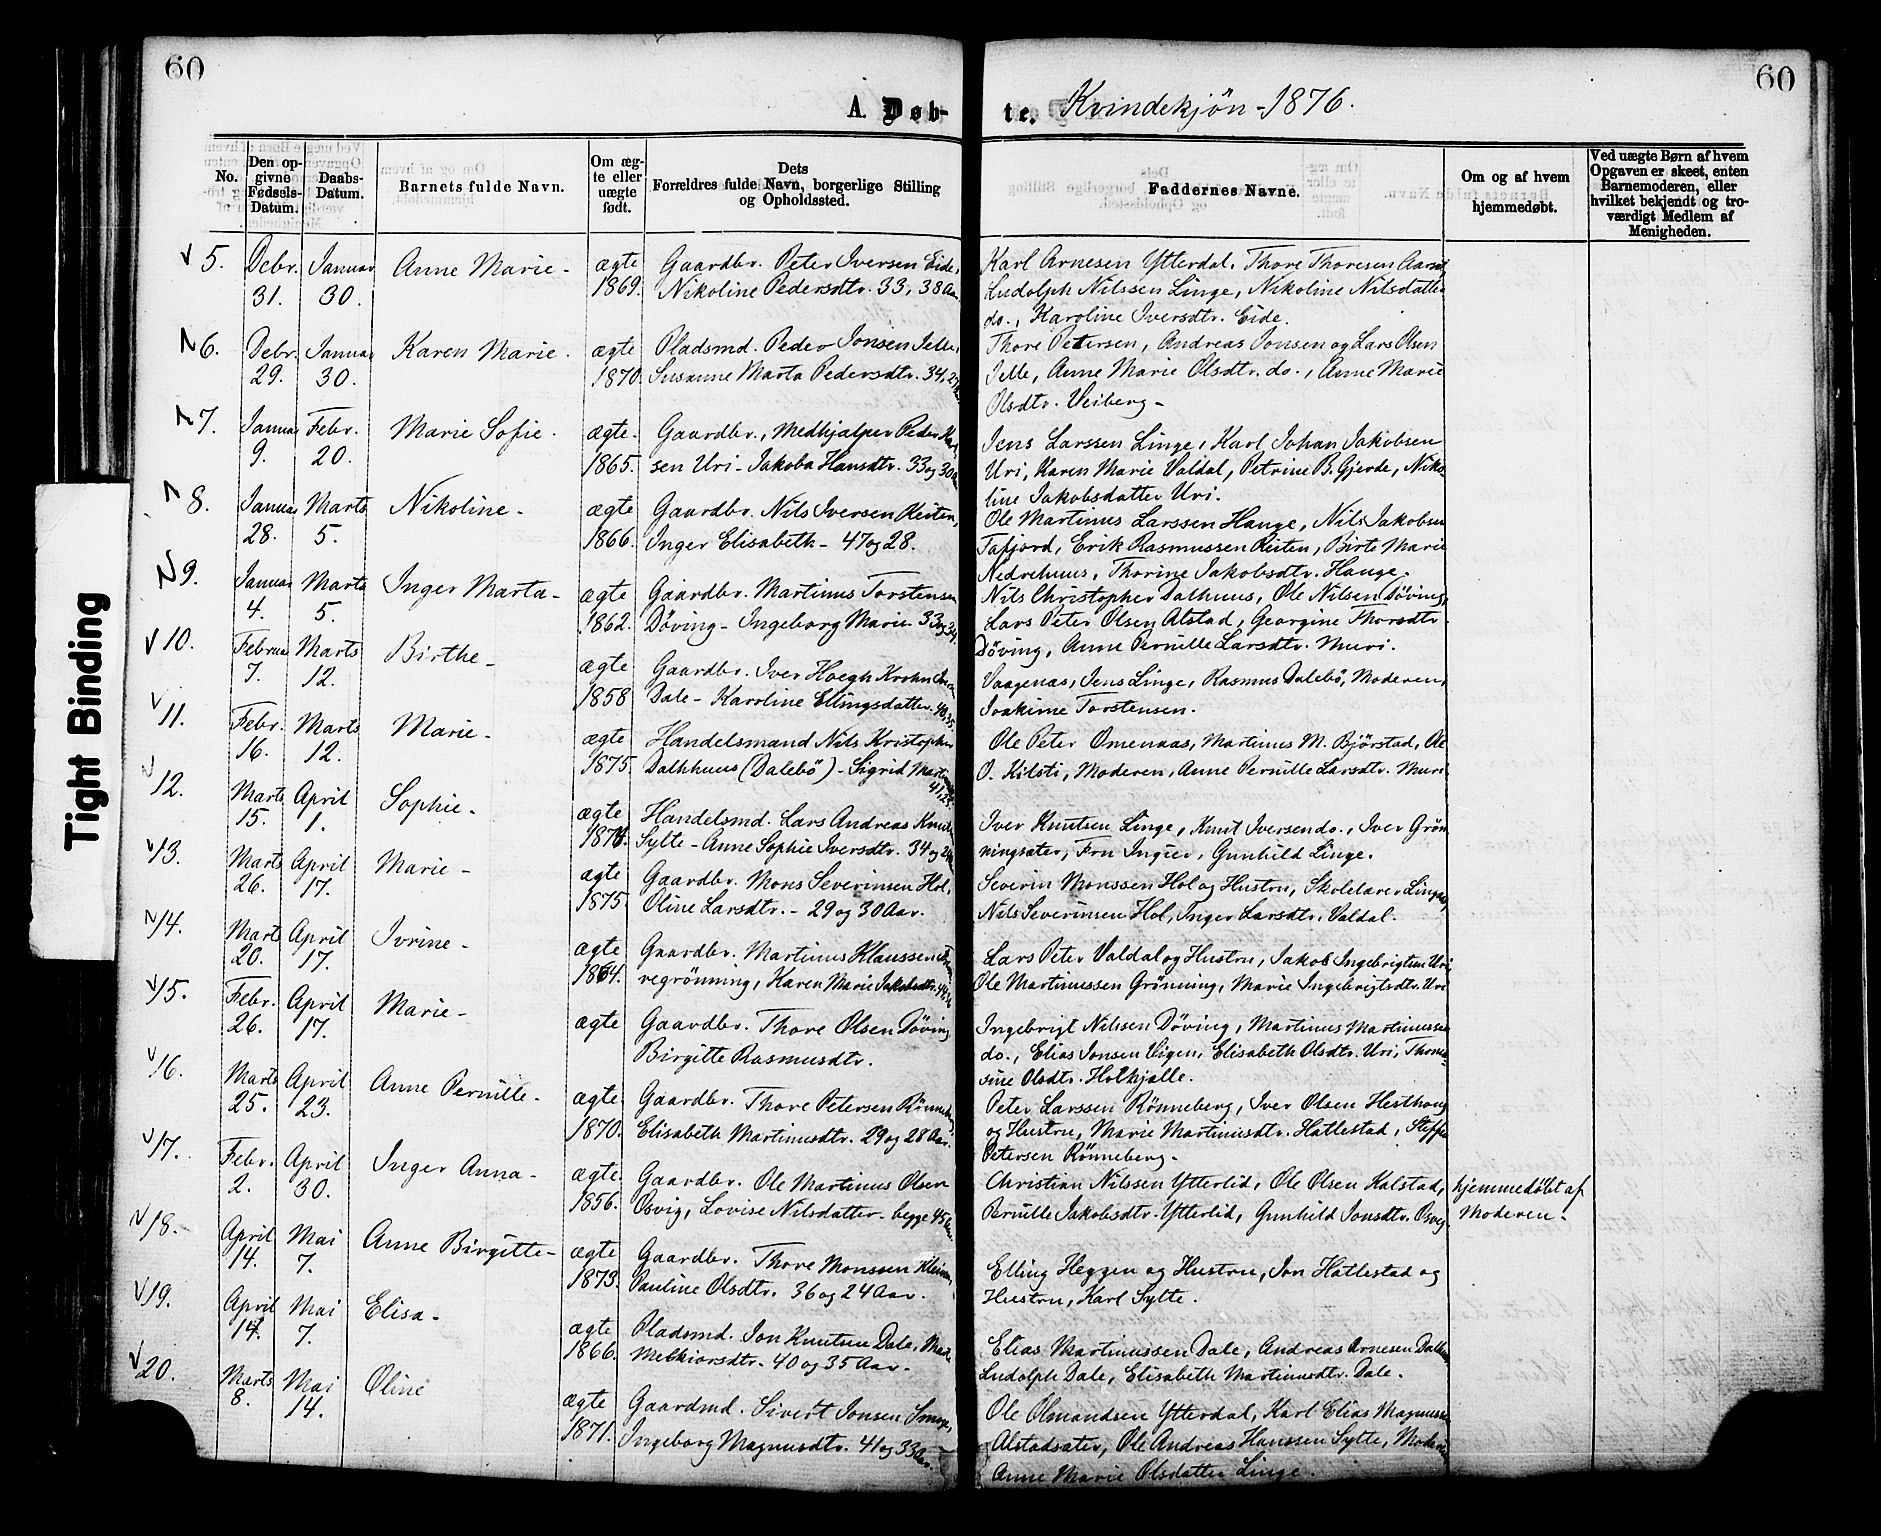 60
60
A. Døb-
te. Kvindekjön - 1876.
No.
Den op-
givne
Fødsels-
Datum.
Daabs-
Datum.
Barnets fulde Navn.
Om æg-
te eller
uægte
født.
Dets
Forældres fulde Navn, borgerlige Stilling
og Opholdssted.
Faddernes Navne.
Om og af hvem
hjemmedøbt.
Ved uægte Børn af hvem
Opgaven er skeet, enten
Barnemoderen, eller
hvilket bekjendt og tro-
værdigt Medlem af
Menigheden.
5. Debr. 31. Januar 30. Anne Marie - ægte 1869.
Gaardbr. Peter Iversen Eide,
Nikoline Pedersdtr. 33, 38 Aar
Karl Arnesen Ytterdal, Thore Thoresen
Ludolph Nilssen Linge, Nikoline Nilsdatter
do., Karoline Iversdtr. Eide.
6. Debr. 29. Januar 30. Karen Marie. ægte 1870.
Pladsmd. Peder Jonsen Selle,
Susanne Marta Pedersdtr. 34,
Thore Petersen, Andreas Jonsen og Lars Olsen
Selle, Anne Marie Olsdtr. do., Anne Marie
Olsdtr. Veiberg -
7. Januar 9. Febr. 20. Marie Sofie. ægte. 1865.
Gaardbr., Medhjælper Peder
sen Uri - Jakoba Hansdtr. 33 og 30
Jens Larssen Linge, Karl Johan Jakobsen
Uri, Karen Marie Valdal, Petrine B. Gjerde, Niko-
line Jakobsdatter Uri.
8. Januar 28. Marts 5. Nikoline - ægte 1866.
Gaardbr. Nils Iversen Reiten,
Inger Elisabeth - 47 og 28.
Ole Martinus Larssen Hauge, Nils Jakobsen
Tafjord, Erik Rasmussen Reiten, Birte Marie
Nedrehuus, Thorine Jakobsdtr. Hauge.
9. Januar 4. Marts 5. Inger Marta - ægte 1862.
Gaardbr. Martinus Torstensen
Döving - Ingeborg Marie 33 og 34.
Nils Christopher Dalhuus, Ole Nilsen Döving,
Lars Peter Olsen Alstad, Georgine Thorsdtr.
Döving, Anne Pernille Larsdtr. Muri.
10. Februar 7. Marts 12. Birthe - ægte 1858
Gaardbr. Iver Hoegh Krohn
Dale - Karoline Ellingsdatter.
Vaagenæs, Jens Linge, Rasmus Dalebö, Moderen,
Joakime Torstensen.
11. Febr. 16. Marts 12. Marie - ægte 1875.
Handelsmand Nils Kristopher
Dalhhuus (Dalebö) - Sigrid
Ole Peter Omenaas, Martinus M. Bjørstad, Ole
O. Kilsti, Moderen, Anne Pernille Larsdtr. Muri
12. Marts 15. April 1. Sophie - ægte 1874.
Handelsmd. Lars Andreas Knutsen
Sylte - Anne Sophie Iversdtr. 34 og
Iver Knutsen Linge, Knut Iversen do., Iver Grön-
ningsæter, Fru Ingier, Gunhild Linge.
13. Marts 26. April 17. Marie - ægte 1875.
Gaardbr. Mons Severinsen Hol,
Oline Larsdtr. - 29 og 30 Aar.
Severin Monssen Hol og Hustru, Skolelærer Linge,
Nils Severinsen Hol, Inger Larsdtr. Valdal.
14. Marts 20. April 17. Ivrine - ægte 1864.
Gaardbr. Martinus Klaussen
regrönning, Karen Marie Jakobsdtr.
Lars Peter Valdal og Hustru, Jakob Ingebrigtsen Uri,
Ole Martinussen Grönning, Marie Ingebrigtsdtr. Uri
15. Febr. 26. April 17. Marie - ægte
Gaardbr. Thore Olsen Döving
Birgitte Rasmusdtr.
Ingebrigt Nilssen Döving, Martinus Martinussen
do., Elias Jonsen Vigen, Elisabeth Olsdtr. Uri, Thoma-
sine Olsdtr. Holkjalle.
16. Marts 25. April 23. Anne Pernille - ægte. 1870.
Gaardbr. Thore Petersen Rønneberg,
Elisabeth Martinusdtr. 29 og 28 Aar.
Peter Larssen Rønneberg, Iver Olsen Hesthaug
og Hustru, Marie Martinusdtr. Hatlestad, Steffen
Petersen Rønneberg -
17. Febr. 2. April 30. Inger Anna - ægte. 1856.
Gaardbr. Ole Martinus Olsen
Osvig, Lovise Nilsdatter - begge 45 Aar.
Christian Nilssen Ytterlid, Ole Olsen Kalstad,
Pernille Jakobsdtr. Ytterlid, Gunhild Jonsdtr. Osvig.
hjemmedöbt af
Moderen -
18. April 14. Mai 7. Anne Birgitte - ægte 1873.
Gaardbr. Thore Monssen
Pauline Olsdtr. 36 og 24 Aar.
Elling Heggen og Hustru, Jon Hatlestad og
Hustru, Karl Sylte.
19. April 14. Mai 7. Elisa - ægte 1866.
Pladsmd. Jon Knutsen Dale, Marie
Melkiorsdtr. 40 og 35 Aar.
Elias Martinussen Dale, Andreas Arnesen
Ludolph Dale, Elisabeth Martinusdtr. Dale.
20. Marts 8. Mai 14. Oline ægte 1871.
Gaardmd. Sivert Jonsen Smoge,
Ingeborg Magnusdtr. 41 og 33 Aar.
Ole Olmandsen Ytterdal, Karl Elias Magnussen
Alstadsæter, Ole Andreas Hanssen Sylte, Moderen
Anne Marie Olsdatter Linge.
Tight Binding